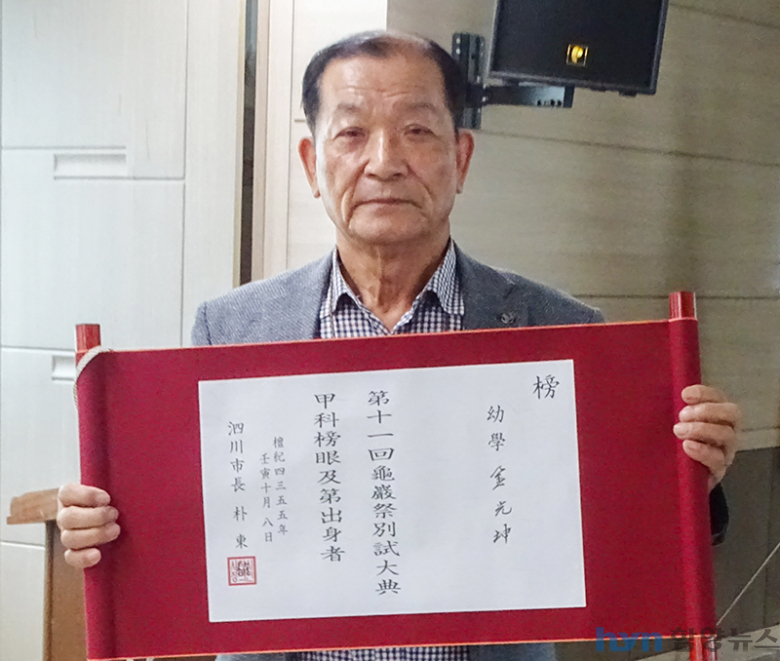 榜
幼學 金光坤
第十一回龜巖祭別試大典
甲科榜眼及第出身者
檀紀四三五五年
壬寅十月八日
泗川市長 朴東